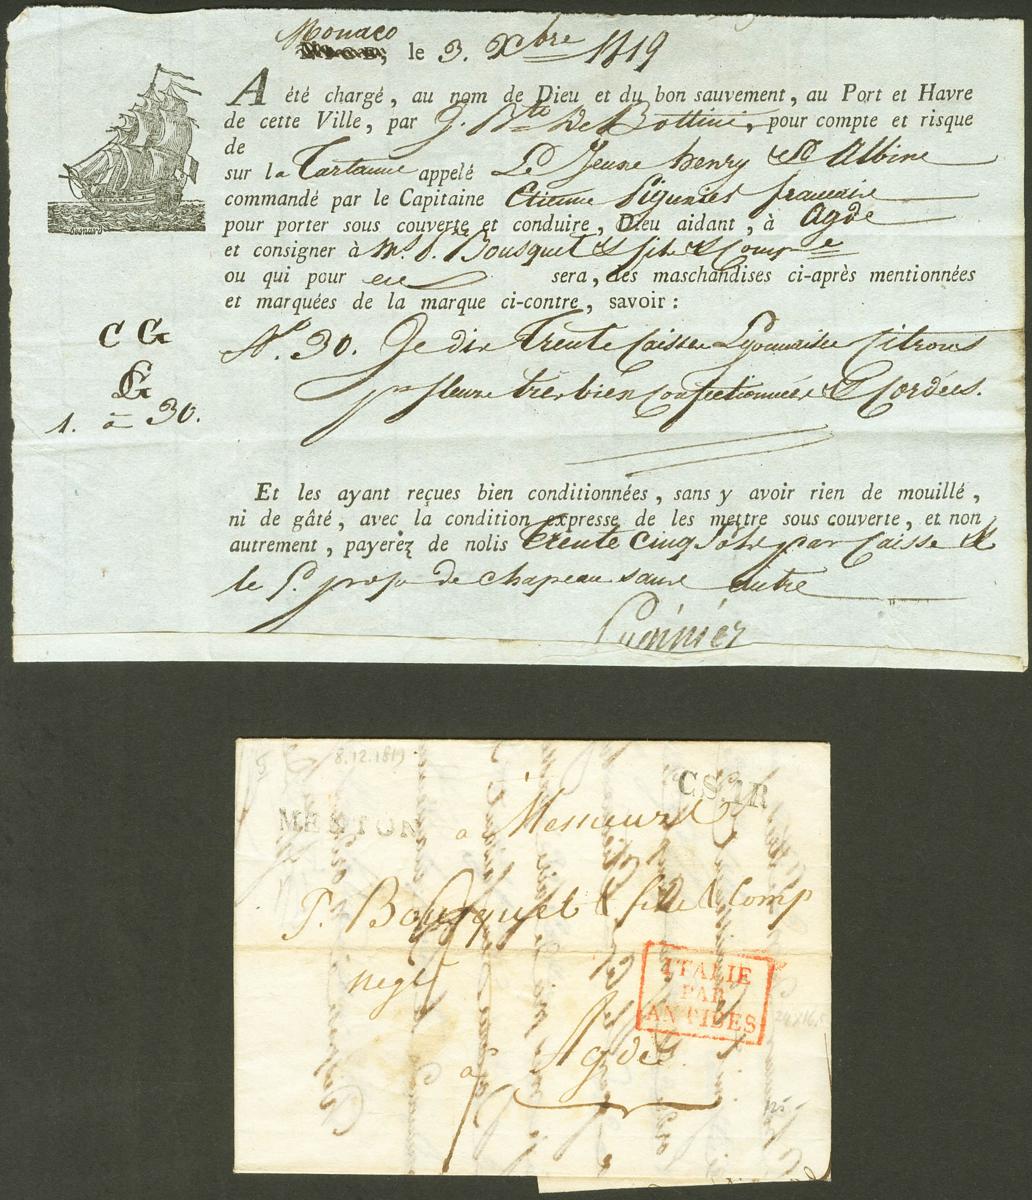 Monaco
NICE, le 3. Xbre 1819
A été chargé, au nom de Dieu et du bon sauvement, au Port et Havre
de cette Ville, par J. Bte De Bottini, pour compte et risque
de
sur la Tartanne appelé Le Jeune henry & St Albine
commandé par le Capitaine Etienne français
pour porter sous couverte et conduire, Dieu aidant, à Agde
et consigner à Mrs P. Bousquet & fils & Compe
ou qui pour eux sera, des maschandises ci-après mentionnées
et marquées de la marque ci-contre, savoir :
C G
G
1. à 30.
No. 30. Je dis Trente Caisses Lyonnaises Citrons
très bien Confectionnées & Cordées.
Et les ayant reçues bien conditionnées, sans y avoir rien de mouillé,
ni de gâté, avec la condition expresse de les mettre sous couverte, et non
autrement, payerez de nolis Trente cinq Sols par Caisse &
le de chapeau sans autre
Besnard
8.12.1819
CSAR
MENTON
à Messieurs
P. Bousquet & fils & Comp
negts
ITALIE
PAR
ANTIBES
24x16,5
à Agde
125